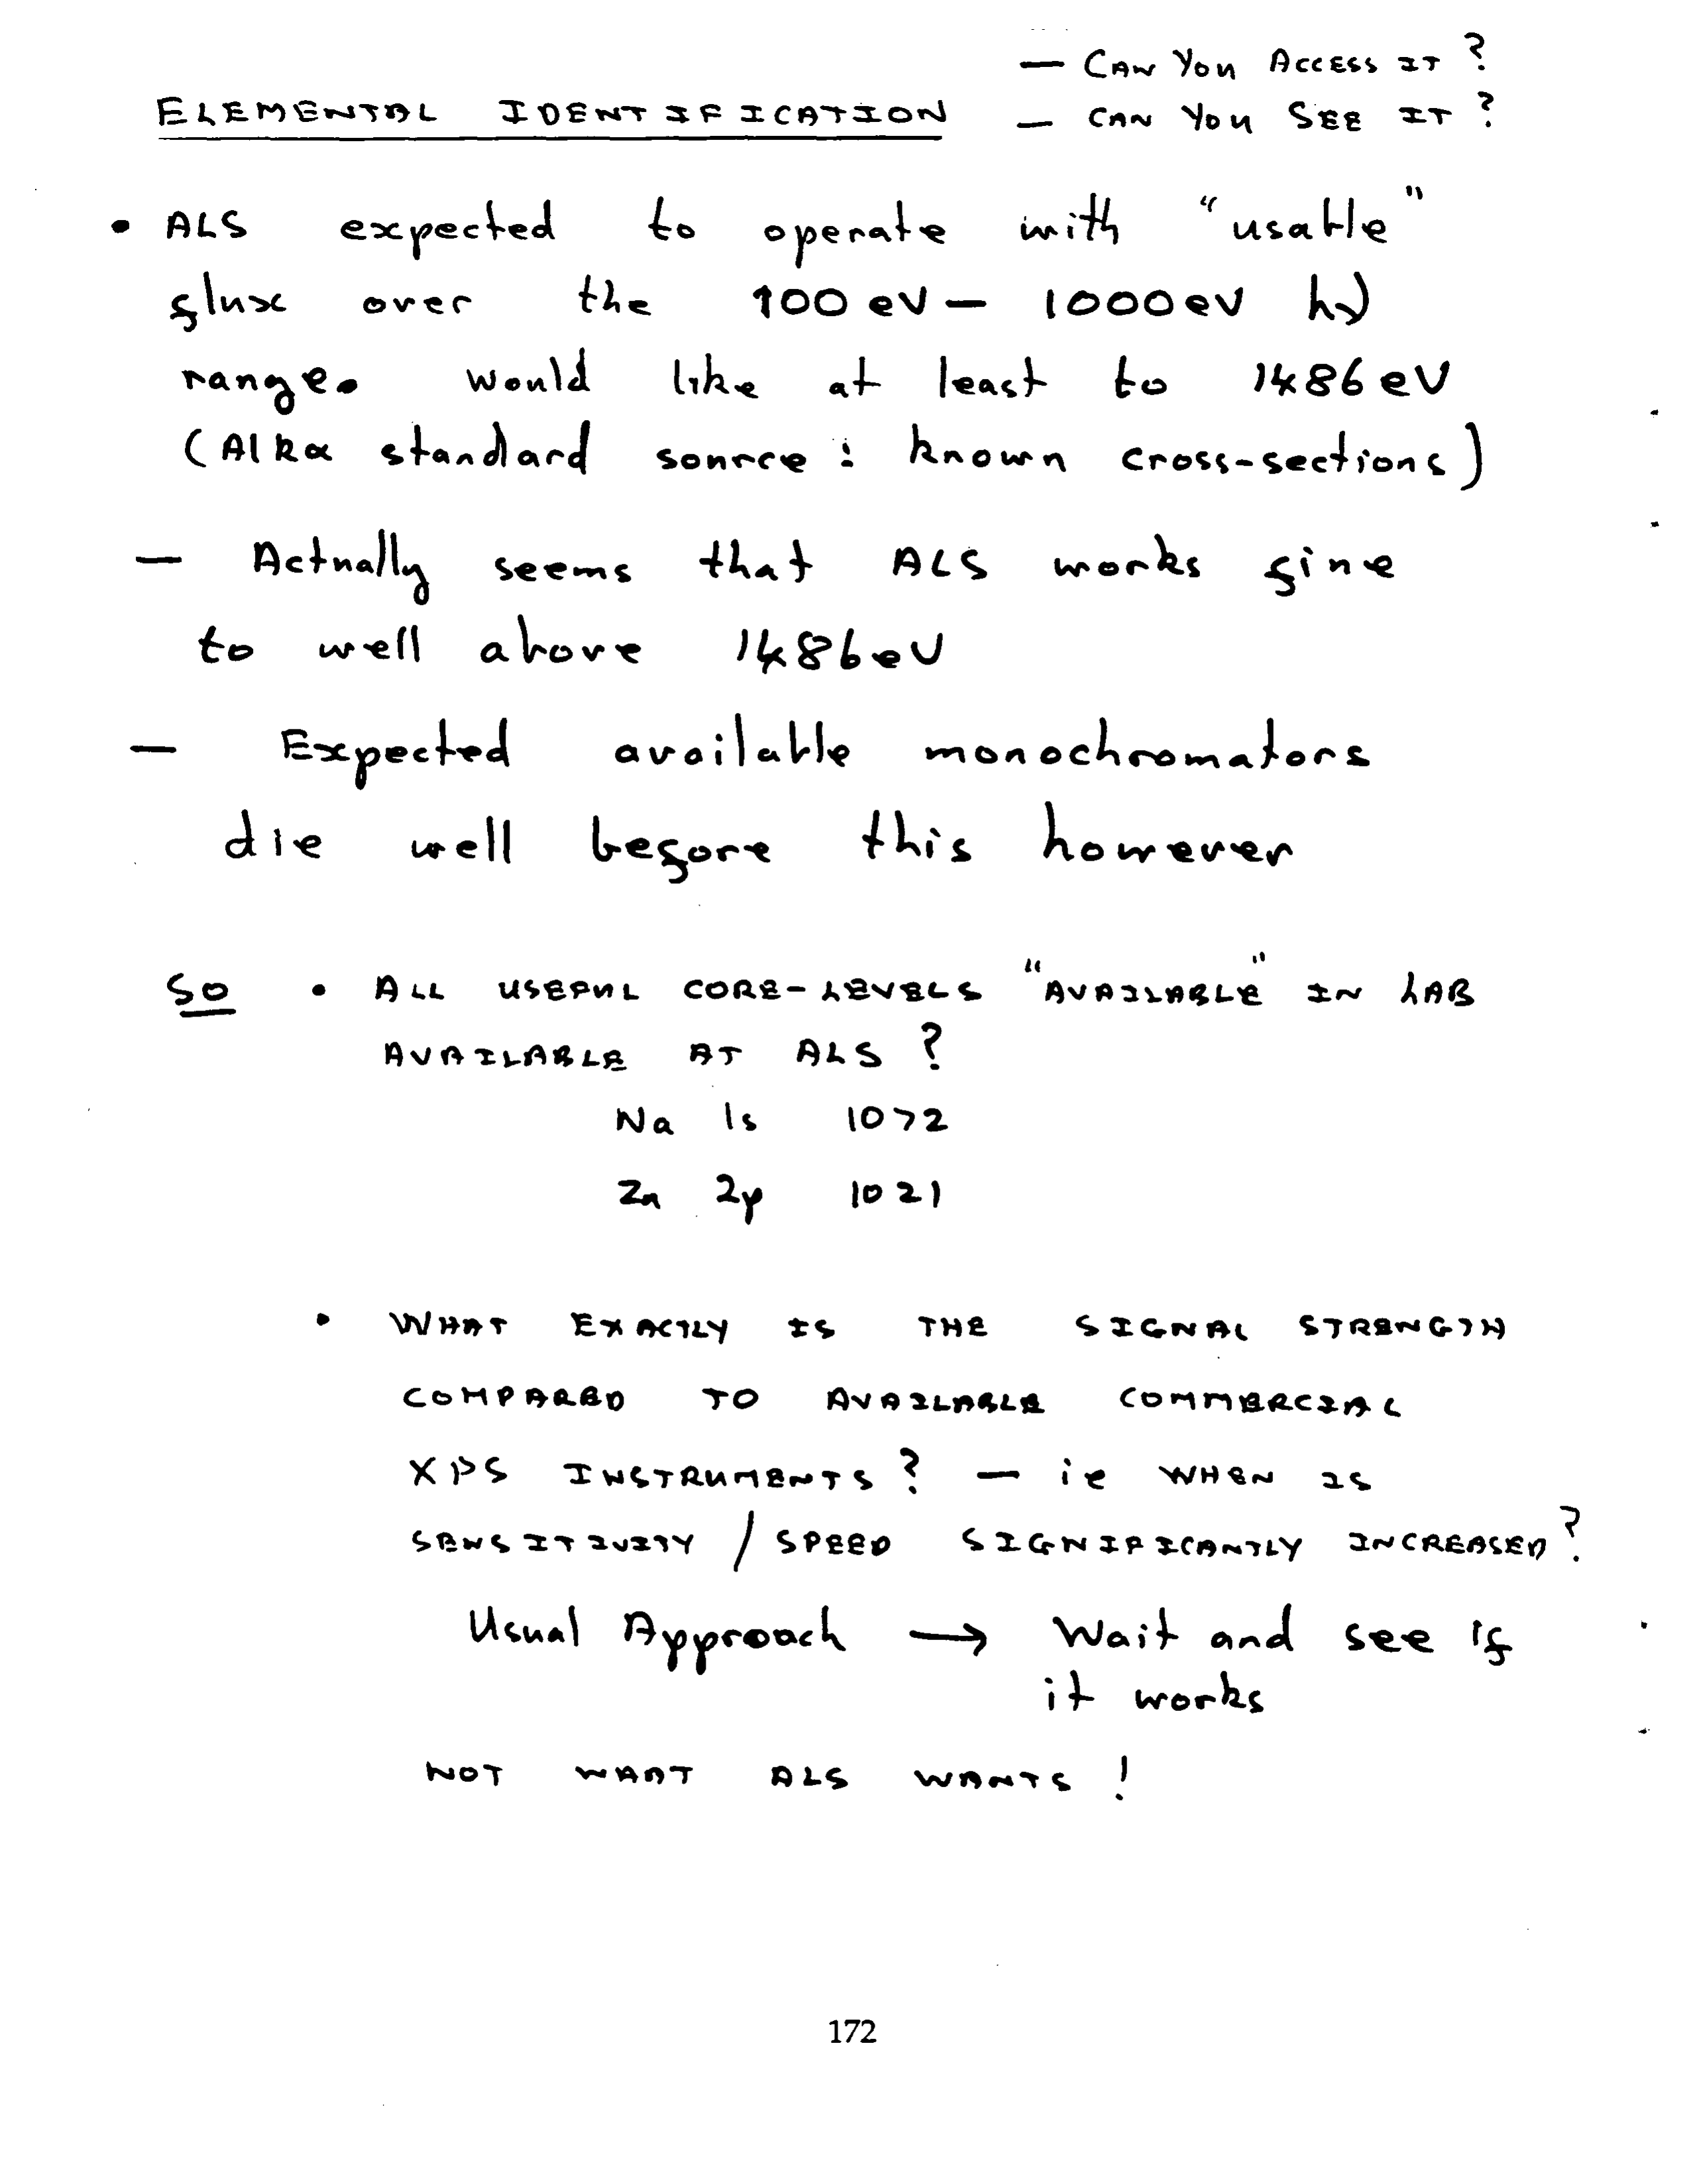 — CAN YOU ACCESS IT ?
ELEMENTAL IDENTIFICATION — CAN YOU SEE IT ?
• ALS expected to operate with "usable"
flux over the 100 eV — 1000 eV hν
range. Would like at least to 1486 eV
(AlKα standard source : known cross-sections)
— Actually seems that ALS works fine
to well above 1486 eV
— Expected available monochromators
die well before this however
SO • ALL USEFUL CORE-LEVELS "AVAILABLE" IN LAB
AVAILABLE AT ALS ?
Na 1s 1072
Zn 2p 1021
• WHAT EXACTLY IS THE SIGNAL STRENGTH
COMPARED TO AVAILABLE COMMERCIAL
XPS INSTRUMENTS ? — ie WHEN IS
SENSITIVITY / SPEED SIGNIFICANTLY INCREASED ?
Usual Approach → Wait and see if
it works
NOT WHAT ALS WANTS !
172